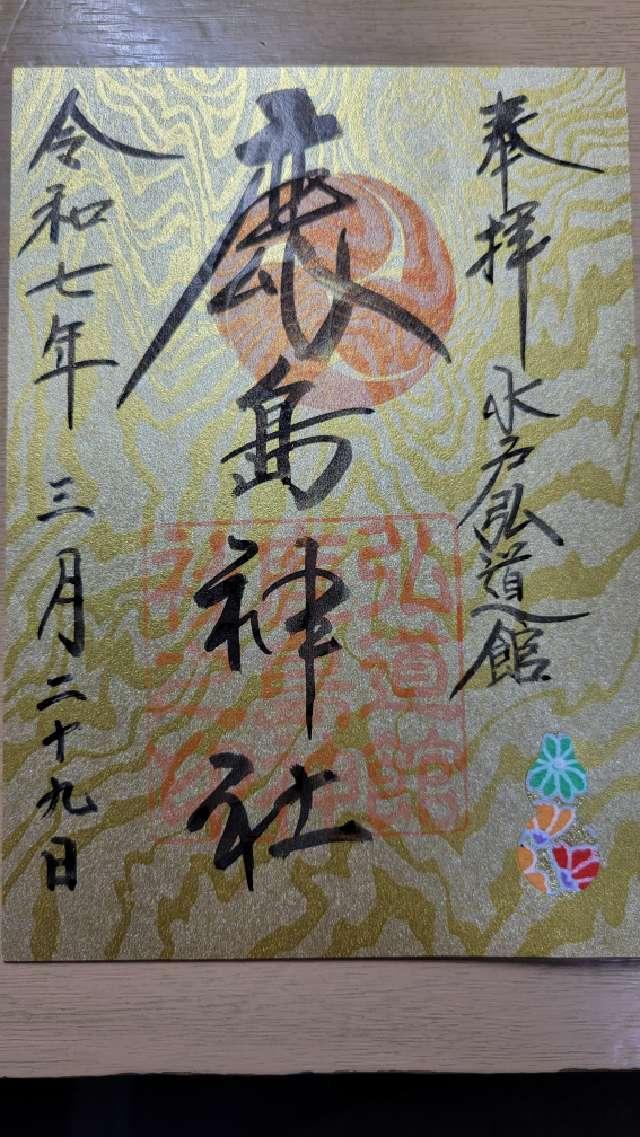 奉拝
水戸弘道館
鹿島神社
令和七年 三月二十九日
弘道館